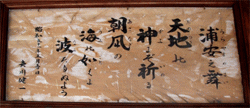 浦安之舞
天地の
神にぞ祈る
朝凪の
海の如くに
波たゝぬ世を